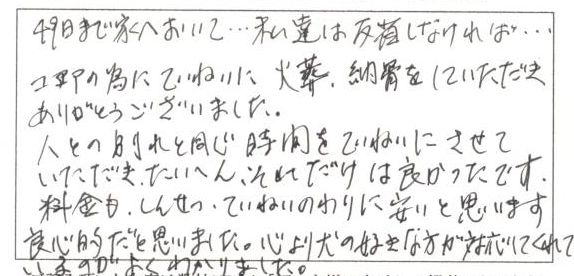 49日まで家へおいて…私達は反省しなければ…
コエアの為にていねいに火葬、納骨をしていただき
ありがとうございました。
人との別れと同じ時間をていねいにさせて
いただき、たいへん、それだけは良かったです。
料金も、しんせつ・ていねいのわりに安いと思います
良心的だと思いました。心より犬の好きな方が対応してくれて
いるのがよくわかりました。